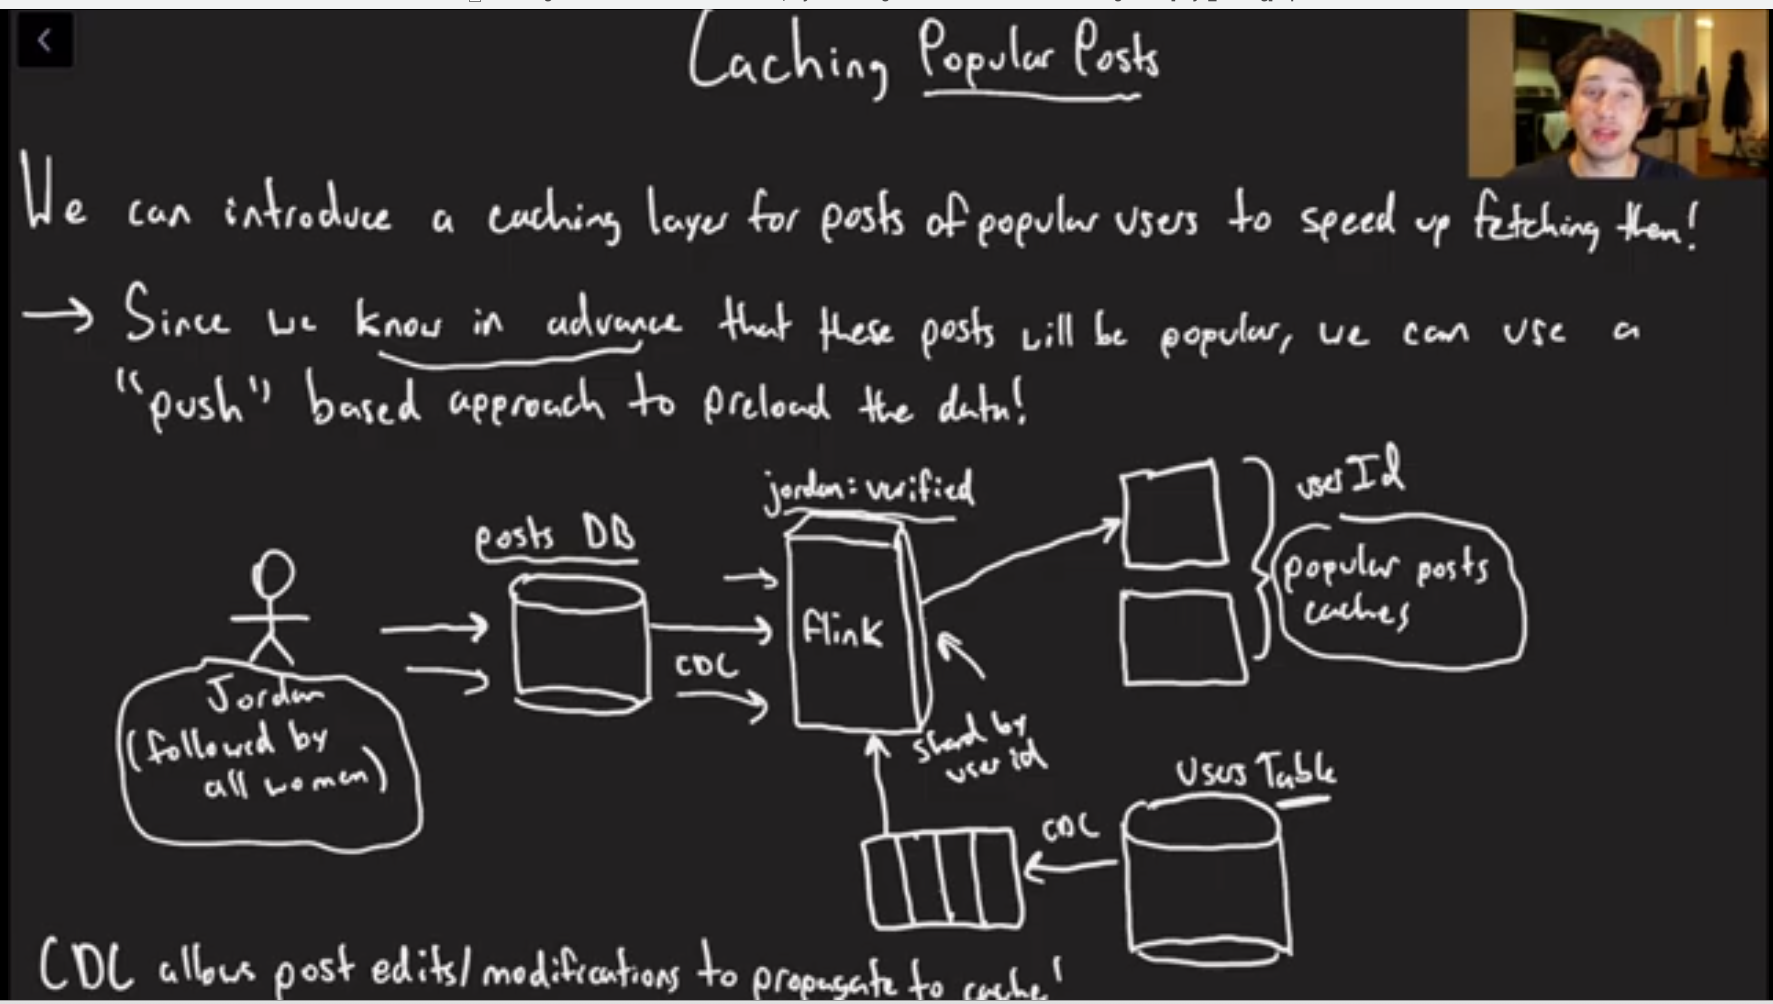 Caching Popular Posts
We can introduce a caching layer for posts of popular users to speed up fetching them!
→ Since we know in advance that these posts will be popular, we can use a
"push" based approach to preload the data!
jordan: verified
userId
posts DB
popular posts
caches
flink
CDC
Jordan
(followed by
all women)
shard by
user id
Users Table
CDC
CDC allows post edits/modifications to propagate to cache!